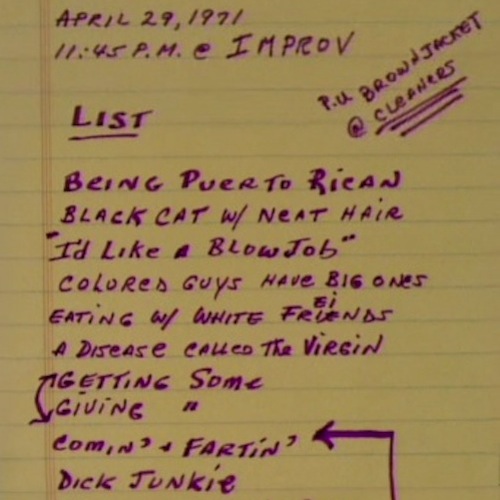 APRIL 29, 1971
11:45 P.M. @ IMPROV
P.U. BROWN JACKET
@ CLEANERS
LIST
BEING PUERTO RICAN
BLACK CAT W/ NEAT HAIR
"I'd Like A BLOWJOB"
COLORED GUYS HAVE BIG ONES
EATING W/ WHITE FRIENDS
A DISEASE CALLED The VIRGIN
GETTING Some
GIVING "
COMIN' + FARTIN'
DICK JUNKIE